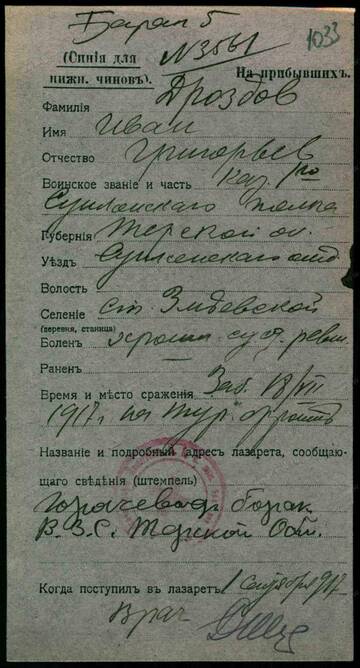 Барак 5
1033
(Синія для
нижн. чиновъ).
N3561
На прибывшихъ.
Фамилія Дроздов
Имя Иван
Отчество Григорьев
Воинское званіе и часть Каз. 1го
Сунженскаго полка
Губернія Терской об.
Уѣздъ Сунженскаго отд
Волость
Селеніе ст. Змѣевской
(деревня, станица)
Боленъ хрони. суст. ревм.
Раненъ
Время и мѣсто сраженія Заб. 18/VII
1917г. на Тур. фронтѣ
Названіе и подробный адресъ лазарета, сообщаю-
щаго свѣдѣнія (штемпель)
Горячевод. барак
В. З. С. Терской Обл.
Когда поступилъ въ лазаретъ 1 сентября 917
Врач